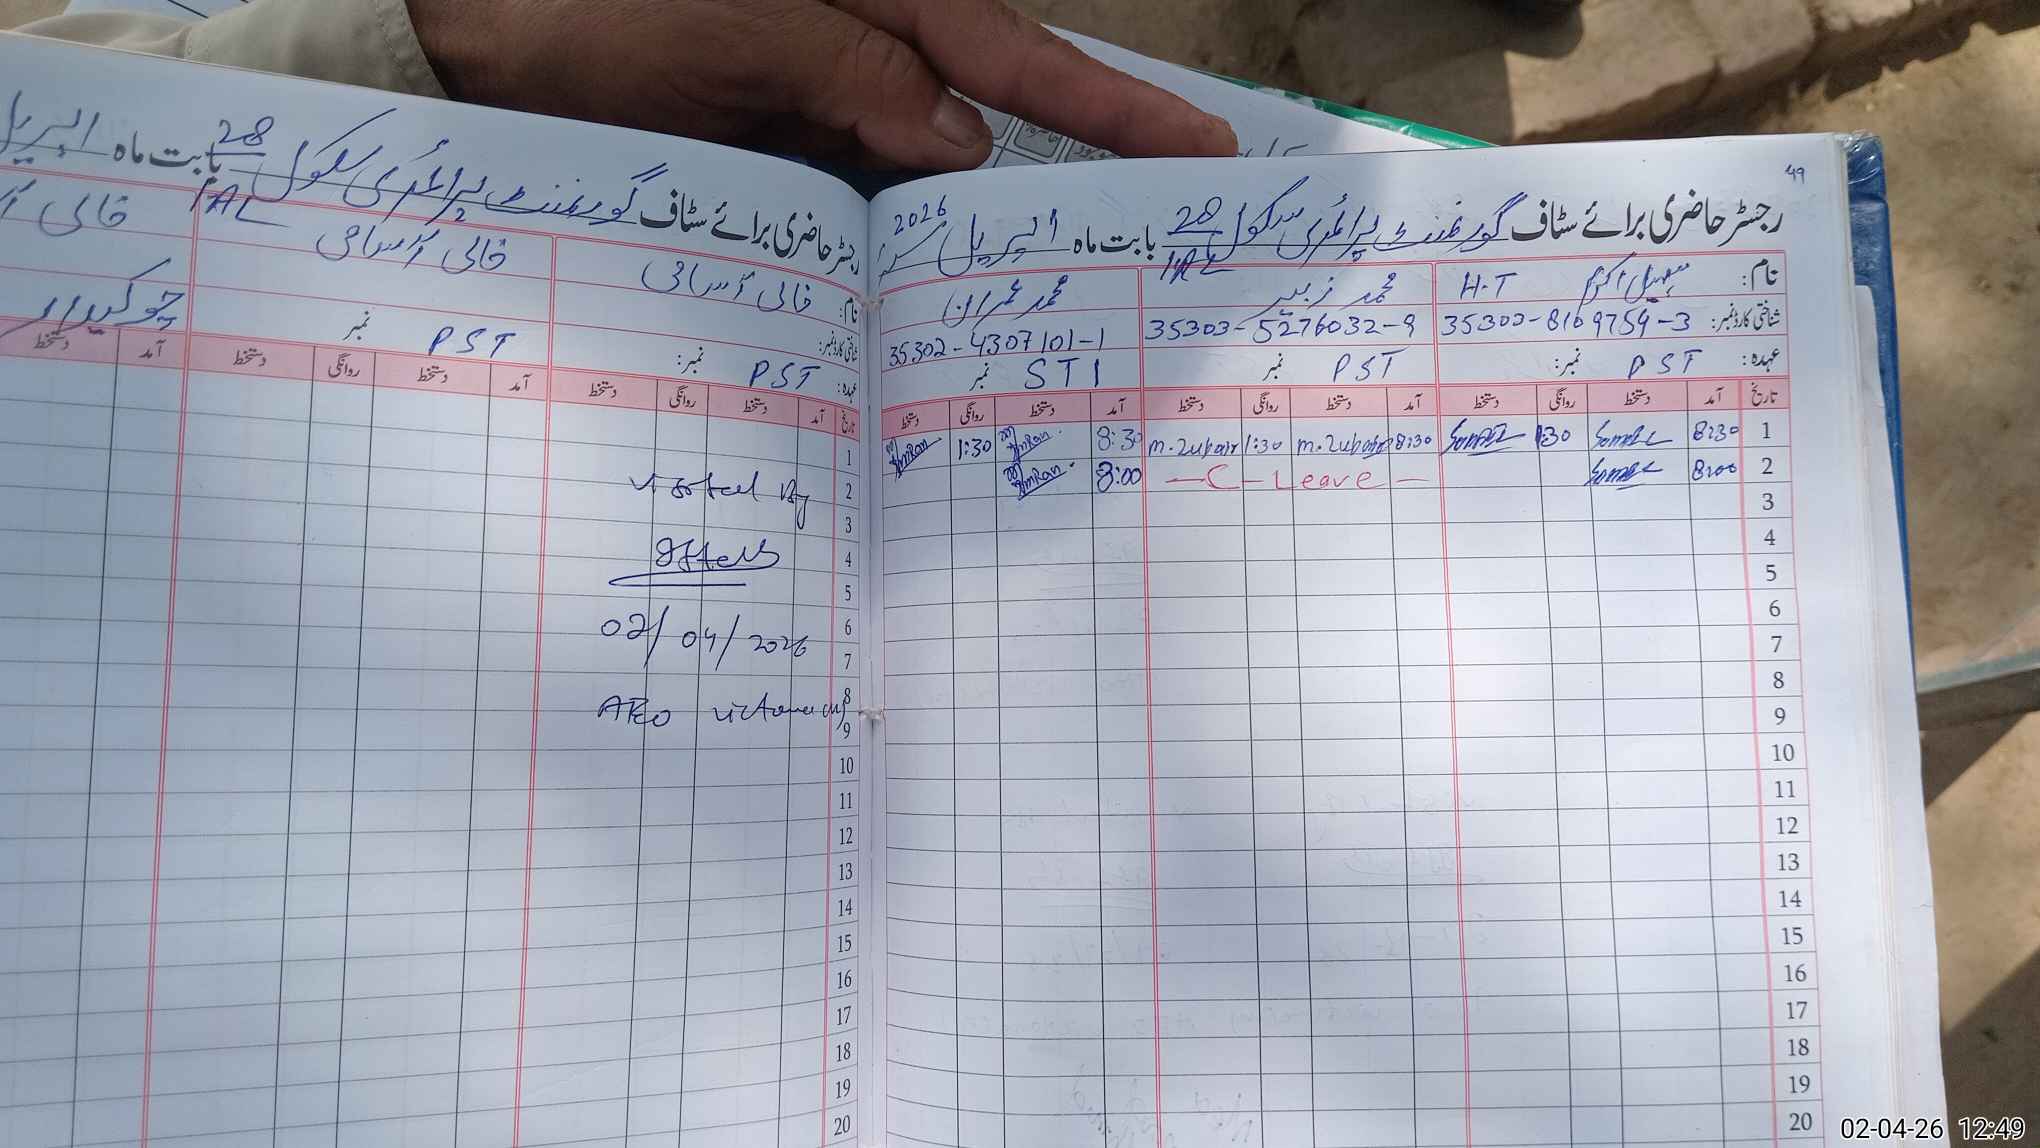 49
رجسٹر حاضری برائے سٹاف گورنمنٹ پرائمری سکول 28 بابت ماہ اپریل 2026
1AL
نام: سہیل اکرم H.T
محمد زبیر
محمد عمران
شناختی کارڈ نمبر: 35303-8109754-3
35303-5276032-9
35302-4307101-1
عہدہ: PST نمبر:
PST نمبر
STI نمبر
تاریخ آمد دستخط روانگی دستخط آمد دستخط روانگی دستخط آمد دستخط روانگی دستخط
1 8:30 1:30 8:30 M.Zubair 1:30 M.Zubair 8:30 Imran 1:30 Imran
2 8:00 — C — Leave — 8:00 Imran
3
4
5
6
7
8
9
10
11
12
13
14
15
16
17
18
19
20
رجسٹر حاضری برائے سٹاف گورنمنٹ پرائمری سکول 28 بابت ماہ اپریل
1AL
نام: خالی آسامی
خالی آسامی
خالی
شناختی کارڈ نمبر:
عہدہ: PST نمبر:
PST نمبر
چوکیدار
تاریخ آمد دستخط روانگی دستخط آمد دستخط روانگی دستخط آمد دستخط
1
2
visited By
3
4
5
6
02/04/2026
7
8
AEO
9
10
11
12
13
14
15
16
17
18
19
20
02-04-26 12:49